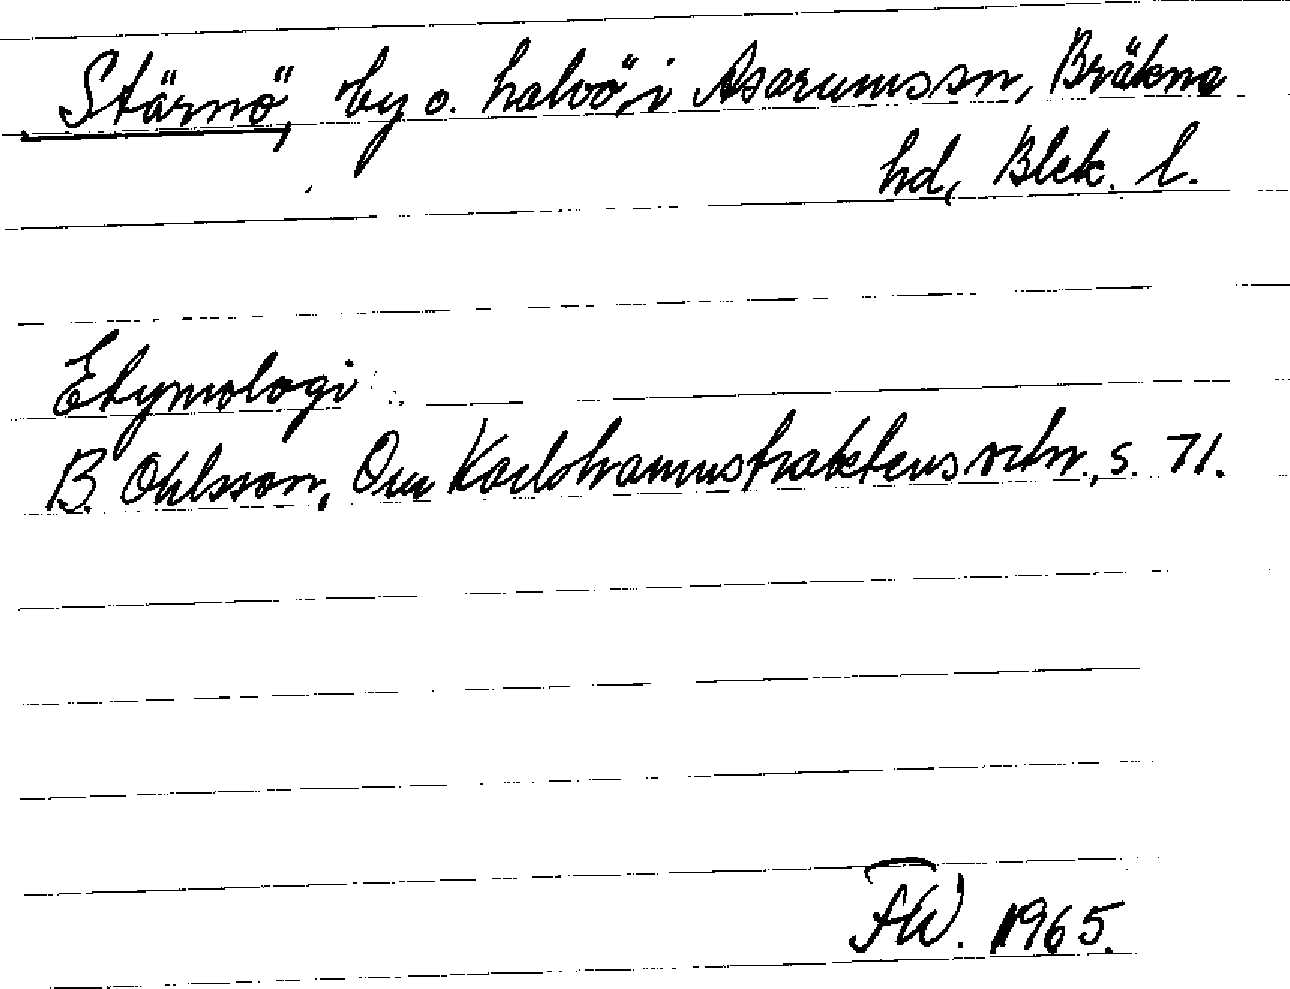 Stärnö, by o. halvö i Asarums sn, Bräkne
hd, Blek. l.
Etymologi
B. Ohlsson, Om Karlshamnstraktens ortn., s. 71.
FW. 1965.